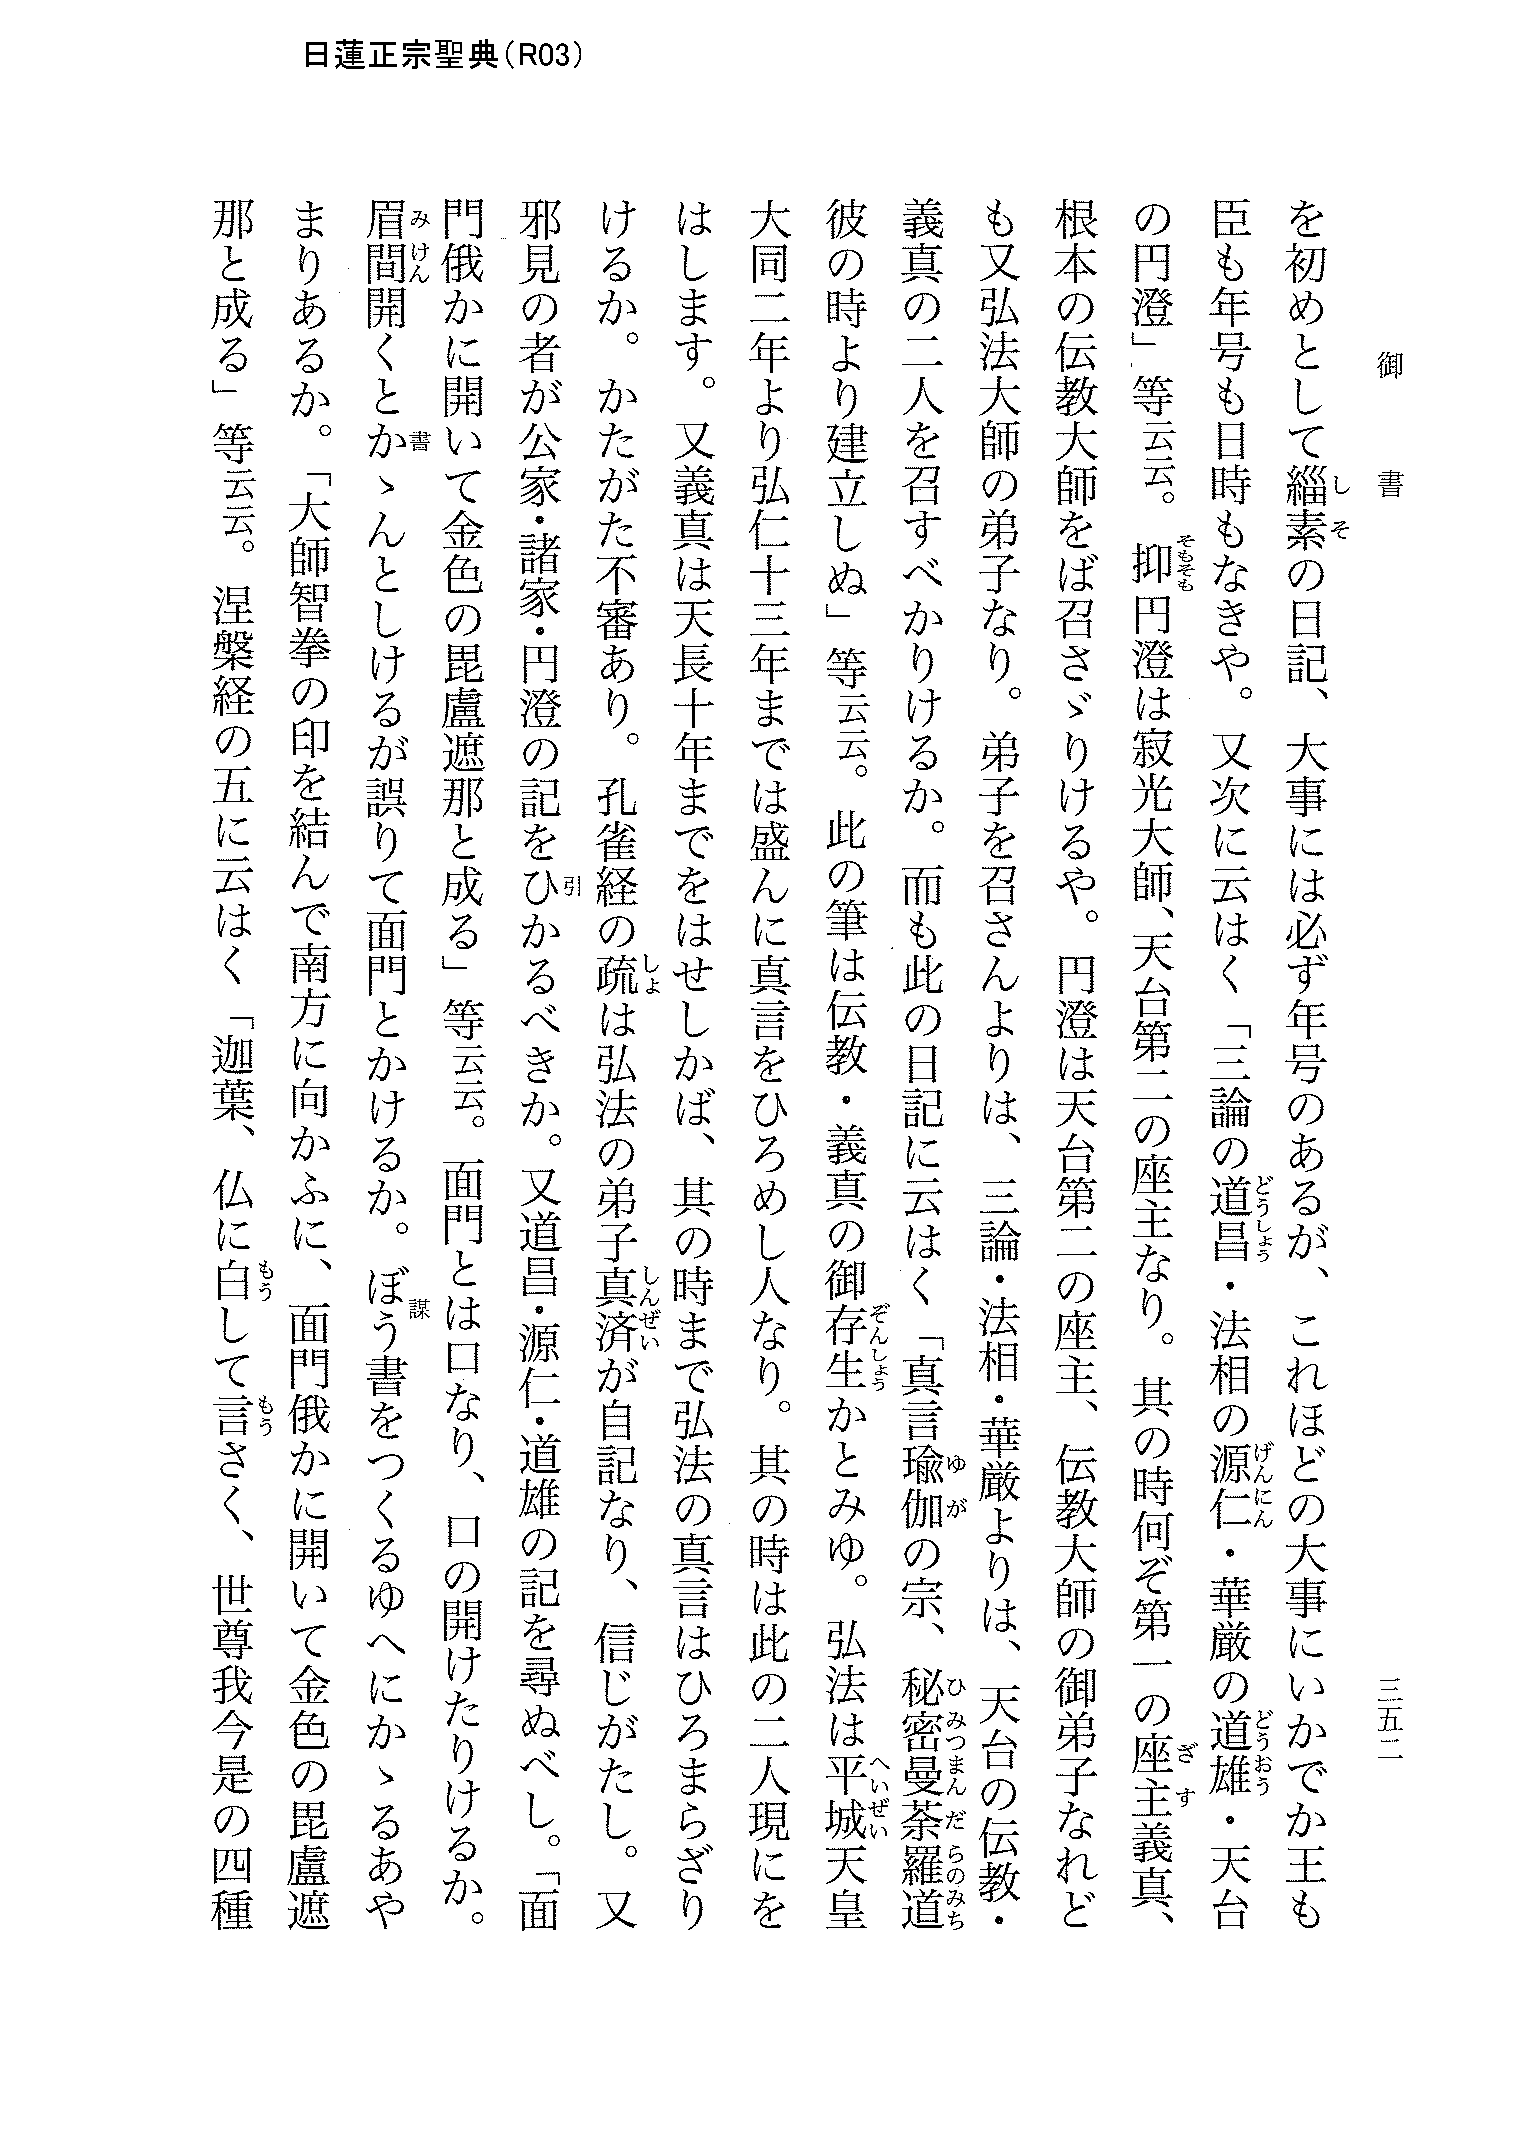 日蓮正宗聖典（R03）
御書
三五二
を初めとして緇素の日記、大事には必ず年号のあるが、これほどの大事にいかでか王も
臣も年号も日時もなきや。又次に云はく「三論の道昌・法相の源仁・華厳の道雄・天台
の円澄」等云云。抑円澄は寂光大師、天台第二の座主なり。其の時何ぞ第一の座主義真、
根本の伝教大師をば召さゞりけるや。円澄は天台第二の座主、伝教大師の御弟子なれど
も又弘法大師の弟子なり。弟子を召さんよりは、三論・法相・華厳よりは、天台の伝教・
義真の二人を召すべかりけるか。而も此の日記に云はく「真言瑜伽の宗、秘密曼荼羅道
彼の時より建立しぬ」等云云。此の筆は伝教・義真の御存生かとみゆ。弘法は平城天皇
大同二年より弘仁十三年までは盛んに真言をひろめし人なり。其の時は此の二人現にを
はします。又義真は天長十年までをはせしかば、其の時まで弘法の真言はひろまらざり
けるか。かたがた不審あり。孔雀経の疏は弘法の弟子真済が自記なり、信じがたし。又
邪見の者が公家・諸家・円澄の記をひかるべきか。又道昌・源仁・道雄の記を尋ぬべし。「面
門俄かに開いて金色の毘盧遮那と成る」等云云。面門とは口なり、口の開けたりけるか。
眉間開くとかゝんとしけるが誤りて面門とかけるか。ぼう書をつくるゆへにかゝるあや
まりあるか。「大師智拳の印を結んで南方に向かふに、面門俄かに開いて金色の毘盧遮
那と成る」等云云。涅槃経の五に云はく「迦葉、仏に白して言さく、世尊我今是の四種